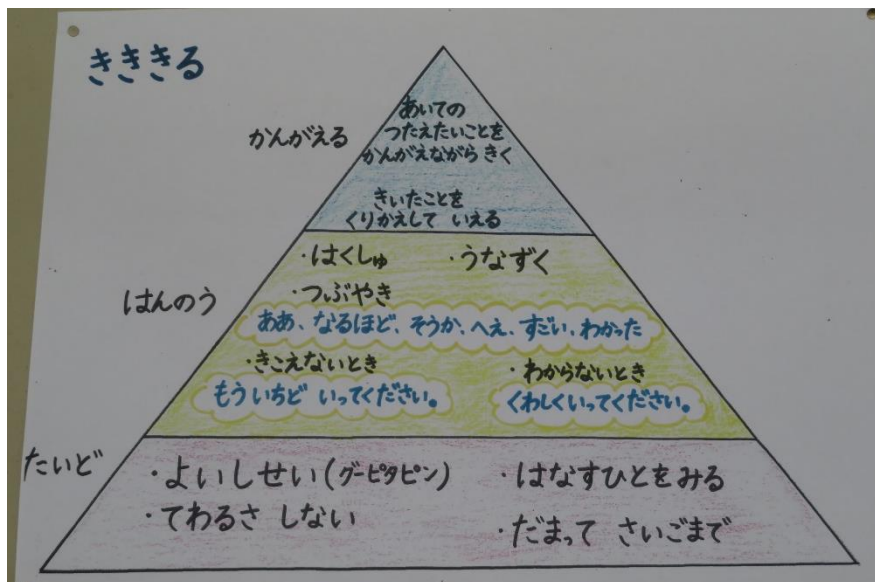 きききる
かんがえる
あいての
つたえたいことを
かんがえながら きく
きいたことを
くりかえして いえる
はんのう
・はくしゅ ・うなずく
・つぶやき
ああ、なるほど、そうか、へえ、すごい、わかった
・きこえないとき ・わからないとき
もういちど いってください。 くわしくいってください。
たいど
・よいしせい(グーピタピン) ・はなすひとをみる
・てわるさ しない ・だまって さいごまで